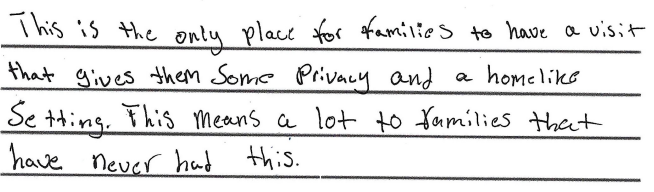 This is the only place for families to have a visit
that gives them Some Privacy and a homelike
Setting. This means a lot to families that
have never had this.